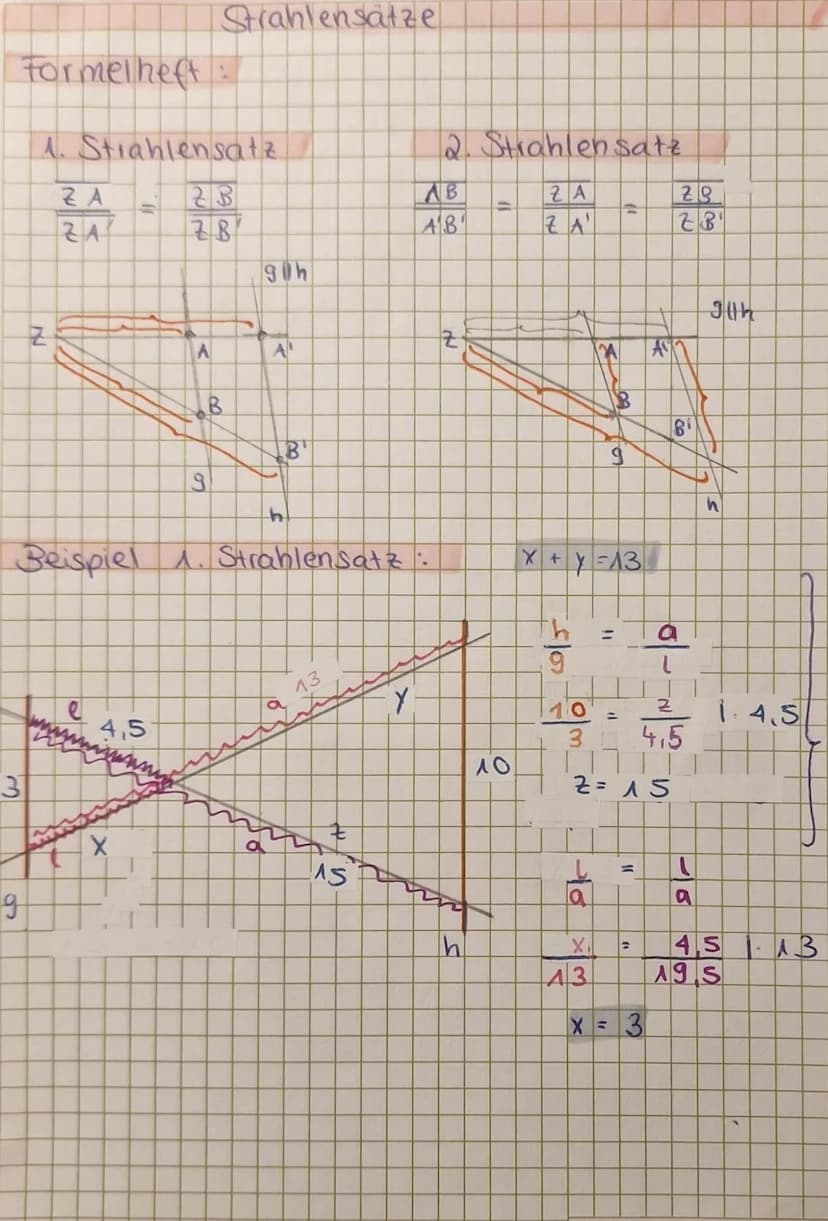 Strahlensätze
Formelheft:
1. Strahlensatz
ZA / ZA' = ZB / ZB'
g||h
Z
A
A'
B
B'
g
h
2. Strahlensatz
AB / A'B' = ZA / ZA' = ZB / ZB'
g||h
Z
A
A'
B
B'
g
h
Beispiel 1. Strahlensatz:
x + y = 13
e
4,5
a 13
y
3
10
l
x
z
a
15
g
h
h / g = a / l
10 / 3 = z / 4,5 | · 4,5
z = 15
l / a = l / a
x / 13 = 4,5 / 19,5 | · 13
x = 3